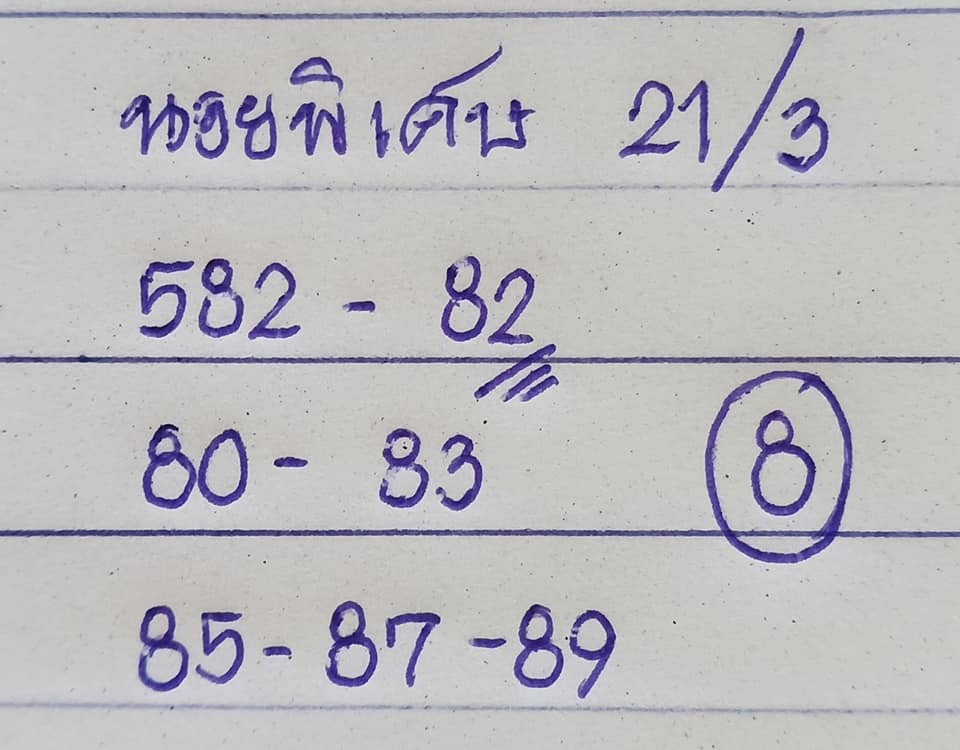 นอยพิเศษ 21/3
582 - 82
80 - 83 8
85 - 87 - 89